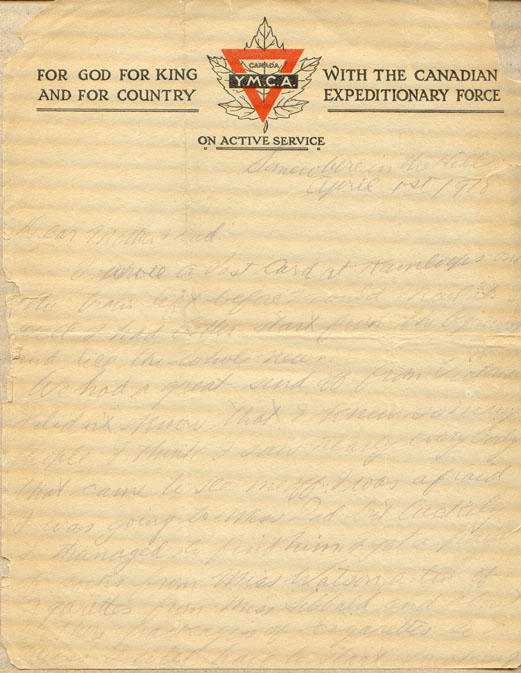 FOR GOD FOR KING
AND FOR COUNTRY
CANADA
Y.M.C.A.
WITH THE CANADIAN
EXPEDITIONARY FORCE
"ON ACTIVE SERVICE"
Somewhere in the Hills
April 1st 1918
Dear Mother & Dad:-
I wrote a Post Card at Kamloops and
the train left before I could mail it
well I had better start from the
and the whole news.
We had a great send off from
I didn't know that I knew so many
people I think I saw nearly everybody
that came to see me off. I was afraid
I was going to miss Dad but luckily
I managed to find him I got a
of books from Miss Watson a tin of
cigarettes from Miss and
three packages of cigarettes so